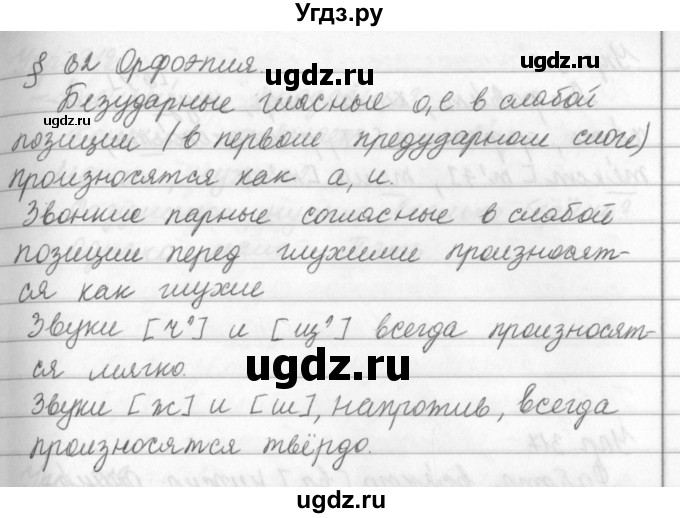 Угдз.ру
§ 62 Орфоэпия.
ugdz.ru
ugdz.ru
Безударные гласные о, е в слабой
позиции (в первом предударном слоге)
ugdz.ru
произносятся как а, и.
Звонкие парные согласные в слабой
ugdz.ru
позиции перед глухими произносят-
ся как глухие
ugdz.ru
Звуки [ч'] и [щ'] всегда произносят-
ся мягко.
ugdz.ru
Звуки [ж] и [ш], напротив, всегда
ugdz.ru
произносятся твёрдо.
ugdz.ru